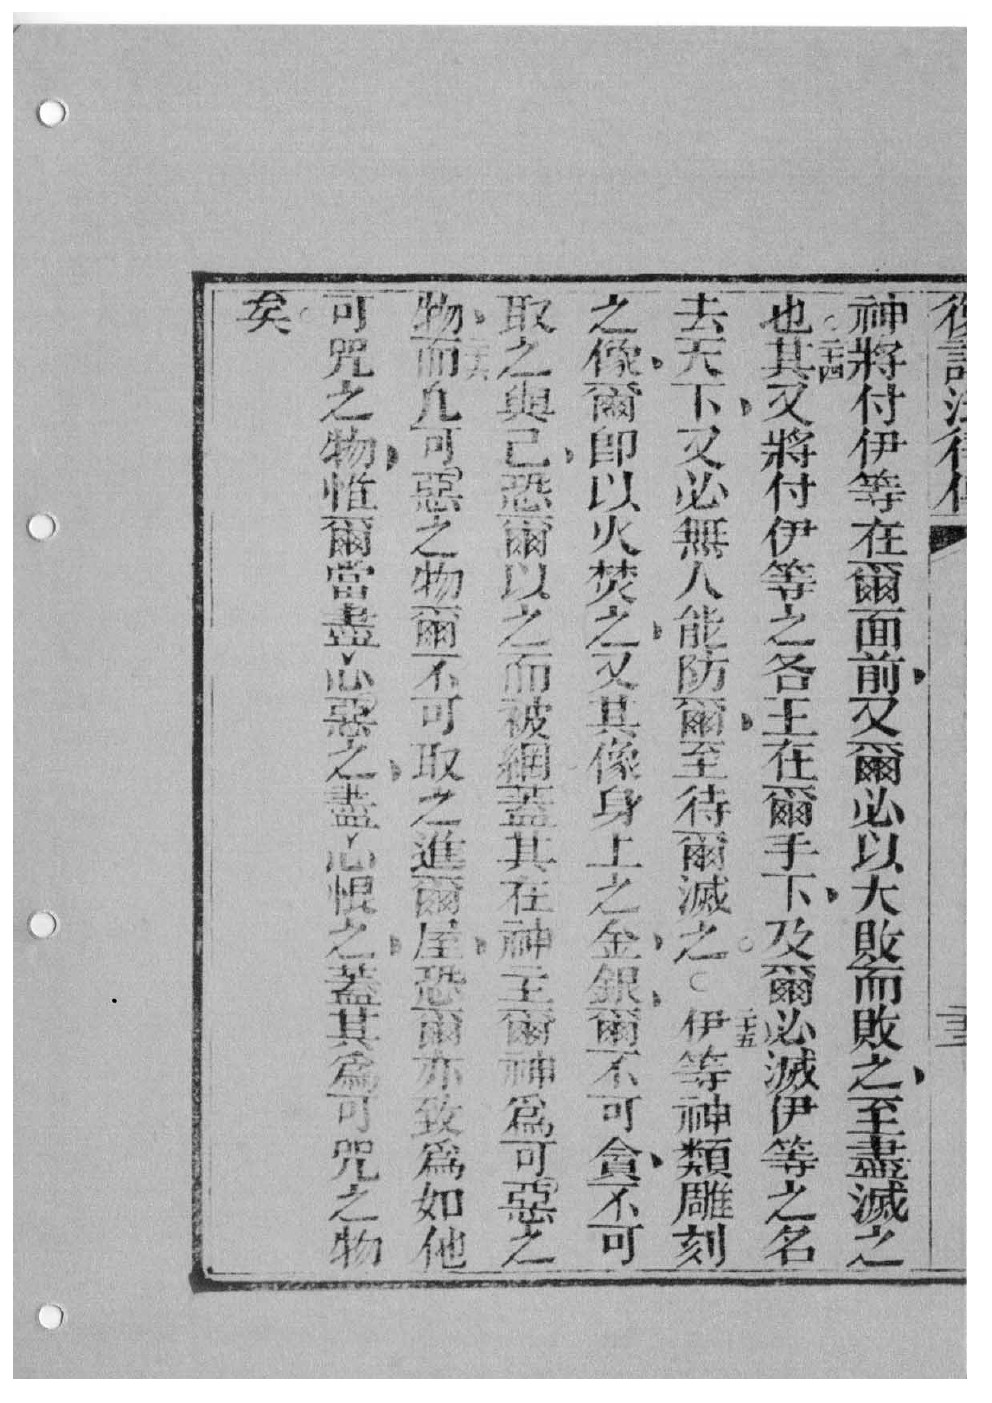 復訓法律傳
神將付伊等在爾面前、又爾必以大敗而敗之、至盡滅之
也。二十四其又將付伊等之各王在爾手下、及爾必滅伊等之名
去天下、又必無人能防爾、至待爾滅之。○二十五伊等神類雕刻
之像、爾卽以火焚之、又其像身上之金、銀、爾不可貪、不可
取之與己、恐爾以之而被網蓋其在神主爾神爲可惡之
物、二十六而凡可惡之物爾不可取之進爾屋、恐爾亦致爲如他
可咒之物、惟爾當盡心惡之、盡心恨之、蓋其爲可咒之物
矣。